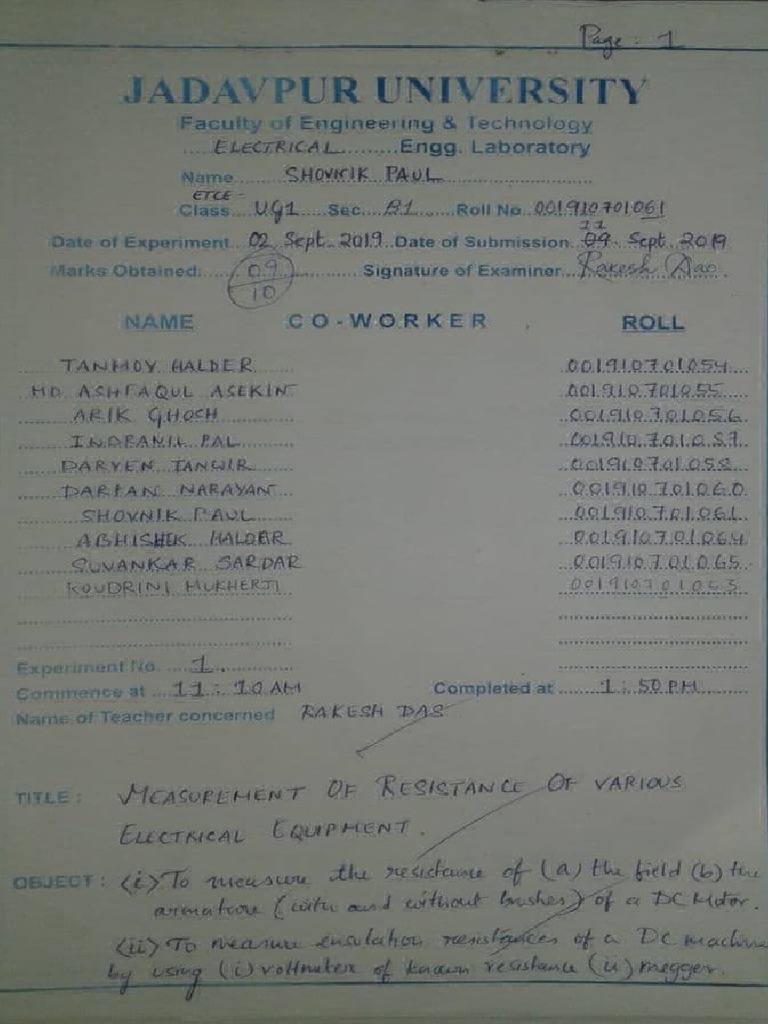 Page : 1
JADAVPUR UNIVERSITY
Faculty of Engineering & Technology
ELECTRICAL Engg. Laboratory
Name SHOVNIK PAUL
ETCE -
Class UG1 Sec. B1 Roll No. 001910701061
11
Date of Experiment 02 Sept. 2019 Date of Submission 09 Sept. 2019
Marks Obtained 09 Signature of Examiner Rakesh Das
10
NAME CO-WORKER ROLL
TANMOY HALDER 001910701054
MD ASHFAQUL ASEKIN 001910701055
ARIK GHOSH 001910701056
INDRANIL PAL 001910701057
TANWIR 001910701058
DARPAN NARAYAN 001910701060
SHOVNIK PAUL 001910701061
ABHISHEK HALDER 001910701064
SUVANKAR SARDAR 001910701065
KOUDRINI MUKHERJI
Experiment No. 1.
Commence at 11:10 AM Completed at 1:50 PM
Name of Teacher concerned RAKESH DAS
TITLE : MEASUREMENT OF RESISTANCE OF VARIOUS
ELECTRICAL EQUIPMENT.
OBJECT : (i) To measure the resistance of (a) the field (b) the
armature (with and without brushes) of a DC Motor.
(ii) To measure insulation resistances of a DC machine
by using (i) voltmeter of known resistance (ii) megger.